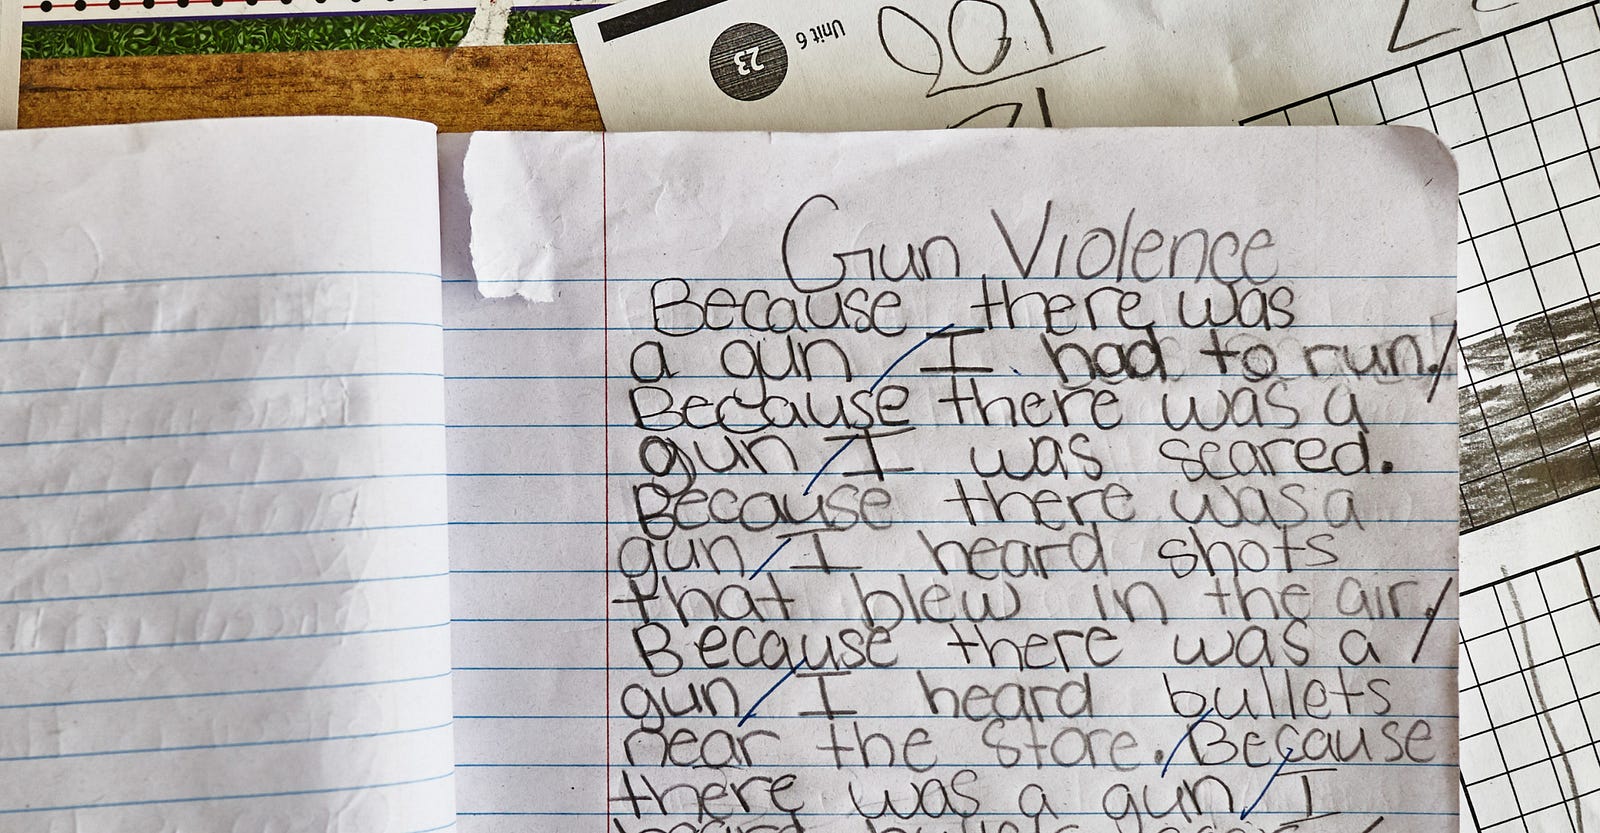 Unit 6
23
100
Gun Violence
Because there was
a gun / I had to run. /
Because there was a
gun / I was scared.
Because there was a
gun / I heard shots
that blew in the air. /
Because there was a /
gun / I heard bullets
near the store. / Because
there was a gun / I
heard